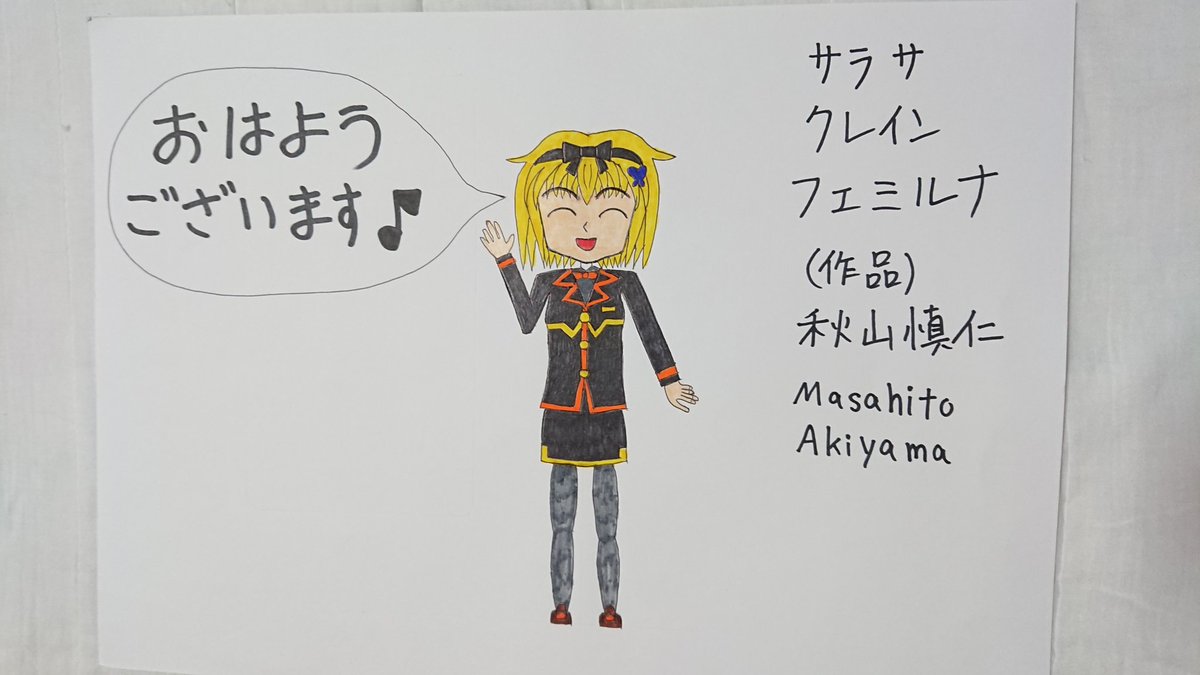 おはよう
ございます♪
サラサ
クレイン
フェミルナ
(作品)
秋山慎仁
Masahito
Akiyama